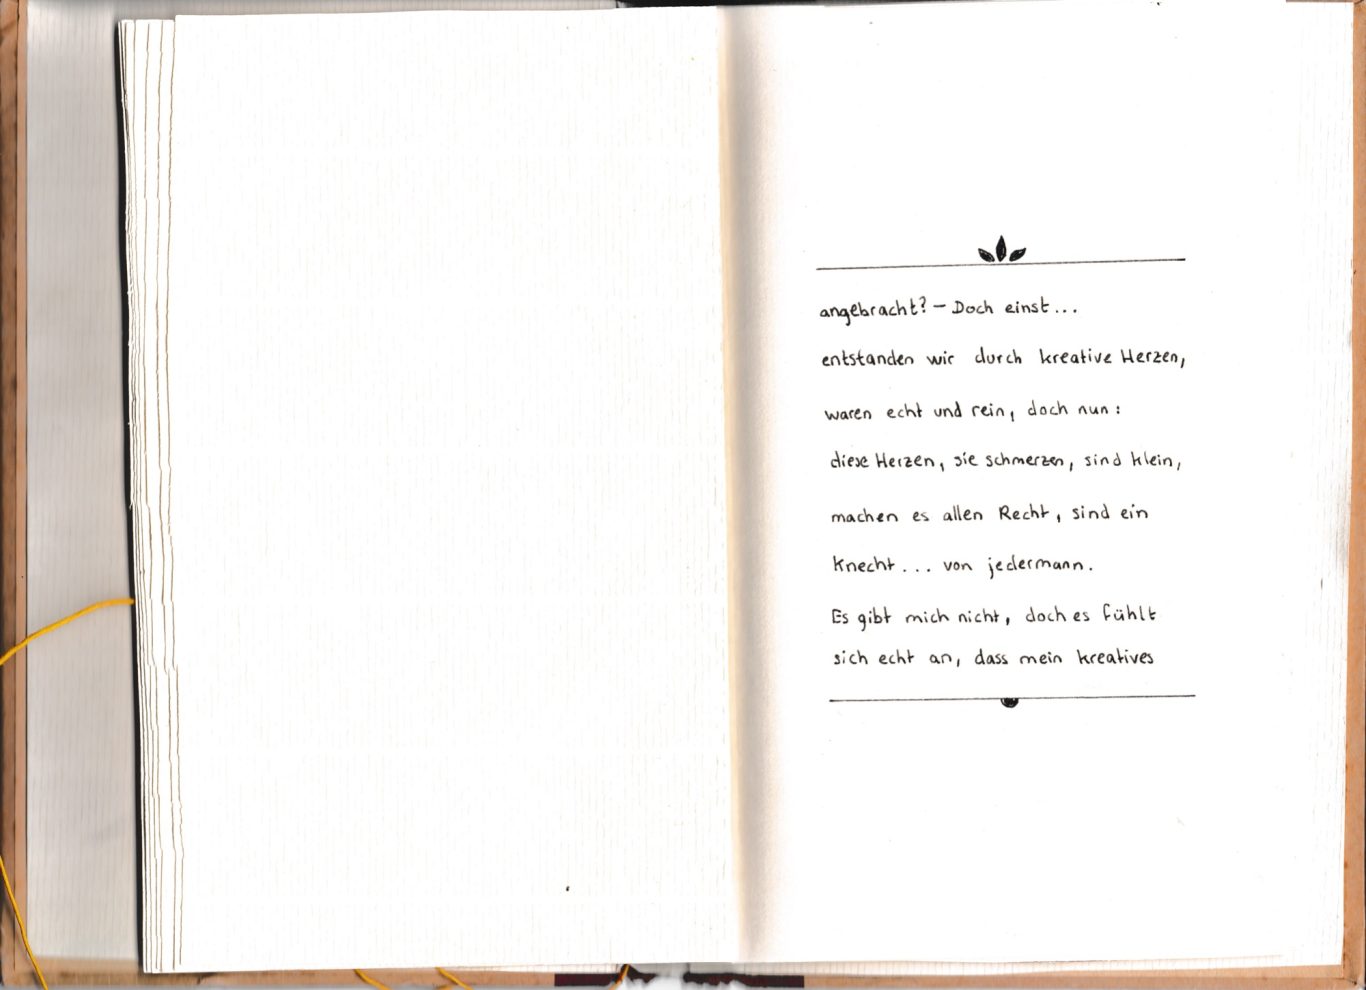 angebracht? – Doch einst...
entstanden wir durch kreative Herzen,
waren echt und rein, doch nun:
diese Herzen, sie schmerzen, sind klein,
machen es allen Recht, sind ein
Knecht... von jedermann.
Es gibt mich nicht, doch es fühlt
sich echt an, dass mein kreatives